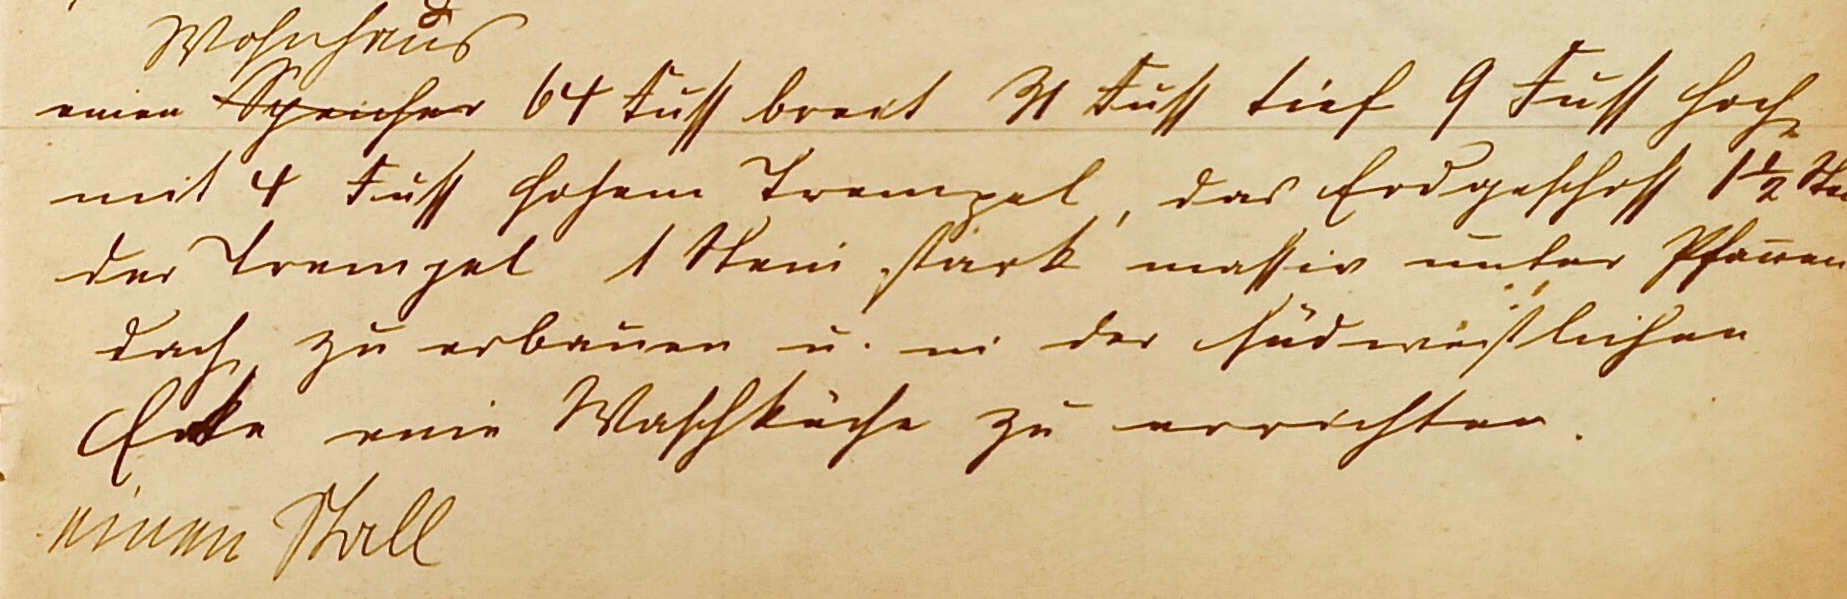 Wohnhaus
einen Speicher 64 Fuß breit 31 Fuß tief 9 Fuß hoch
mit 4 Fuß hohem Trempel, das Erdgeschoß 1½ Stei
der Trempel 1 Stein stark massiv unter Pfannen
dach zu erbauen u. in der südwestlichen
Ecke eine Waschküche zu errichten.
einen Stall